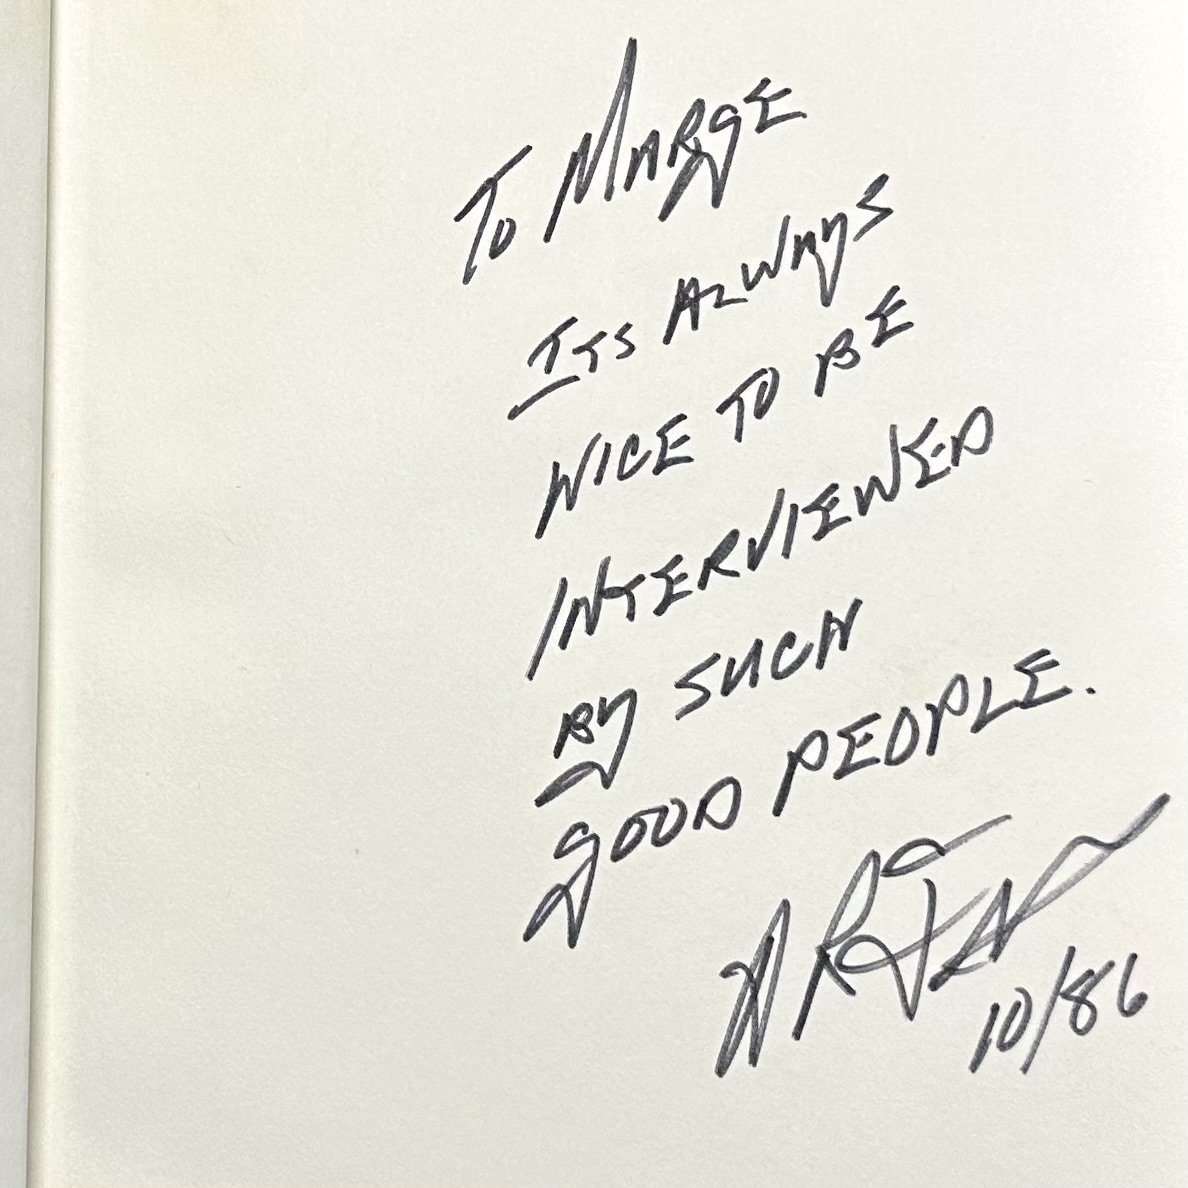 To MARGE
ITS ALWAYS
NICE TO BE
INTERVIEWED
BY SUCH
GOOD PEOPLE.
10/86